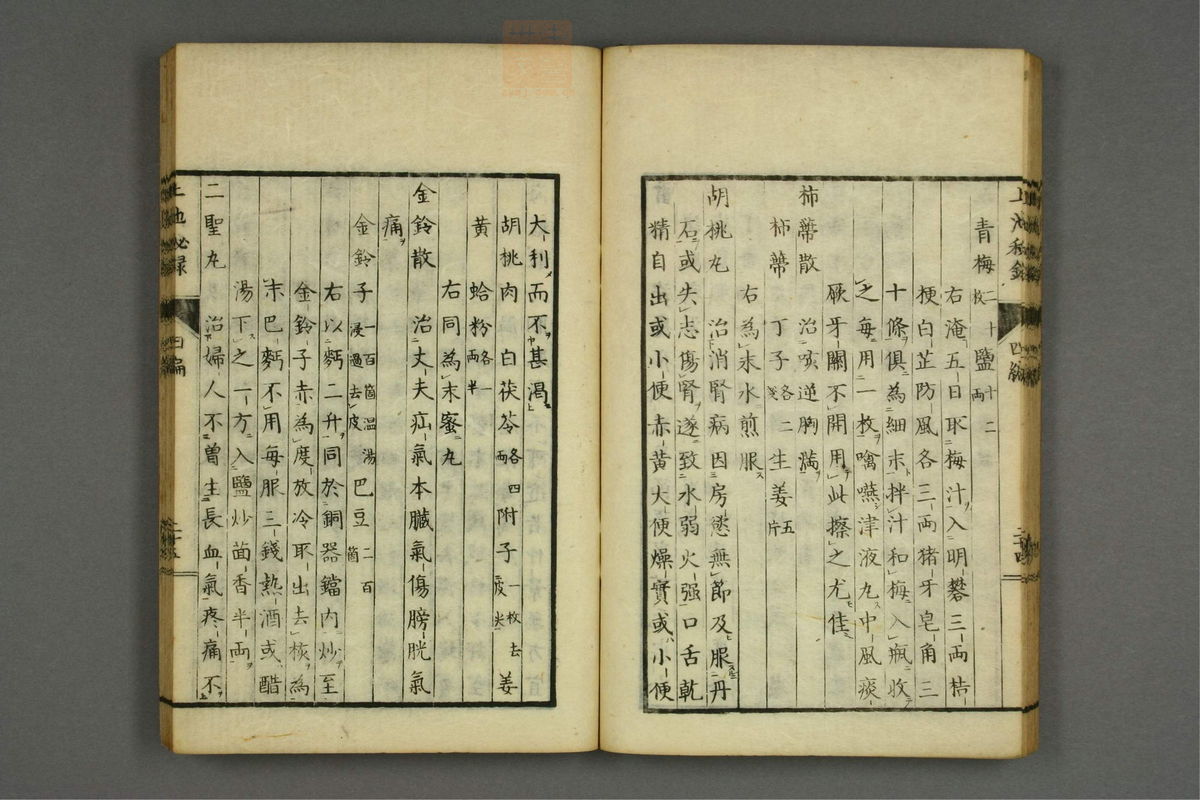 青梅二十枚鹽十二兩
右淹五日取梅汁入明礬三兩桔
梗白芷防風各三兩猪牙皂角三
十條俱為細末拌汁和梅入瓶收
之每用一枚噙嚥津液凡中風痰
厥牙關不開用此擦之尤佳
柿蔕散 治咳逆胸滿
柿蔕 丁子各二戔生姜五片
右為末水煎服
胡桃丸 治消腎病因房慾無節及服丹
石或失志傷腎遂致水弱火强口舌乾
精自出或小便赤黄大便燥實或小便
大利而不甚渴
胡桃肉 白茯苓各四兩附子一枚去皮尖姜
黄 蛤粉各一兩半
右同為末蜜丸
金鈴散 治丈夫疝氣本臟氣傷膀胱氣
痛
金鈴子一百箇温湯浸過去皮巴豆二百箇
右以麪二升同於銅器鐺内炒至
金鈴子赤為度放冷取出去核為
末巴麪不用每服三錢熱酒或醋
湯下之一方入鹽炒茴香半兩
二聖丸 治婦人不曽生長血氣疼痛不
上池秘録 四編 二十四
上池秘録 四編 二十五